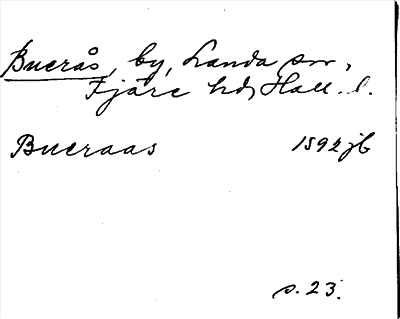 Buerås, by, Landa sn,
Fjäre hd, Hall. l.
Bueraas 1592 jb
s. 23.